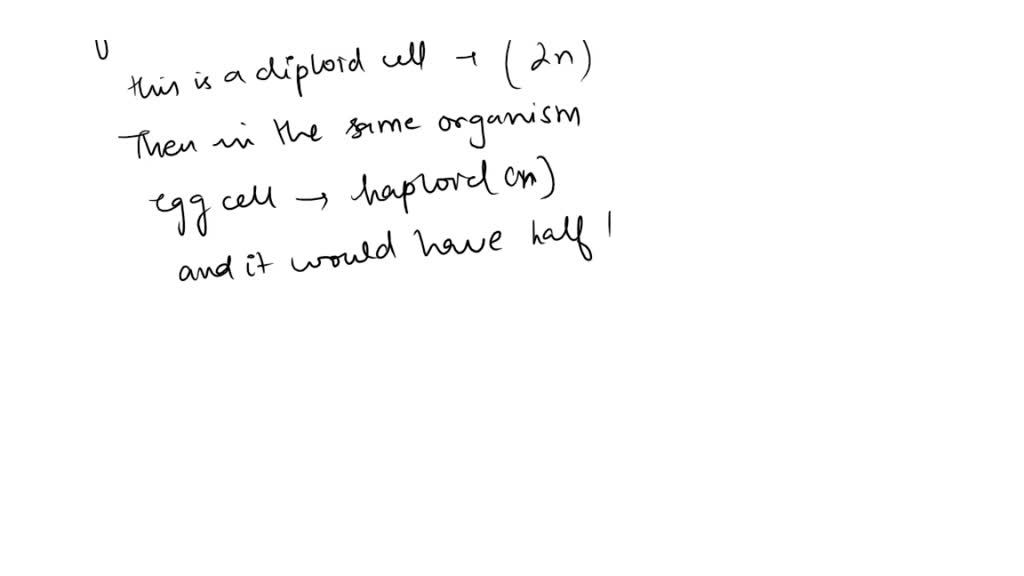 this is a diploid cell → (2n)
Then in the same organism
egg cell → haploid (n)
and it would have half